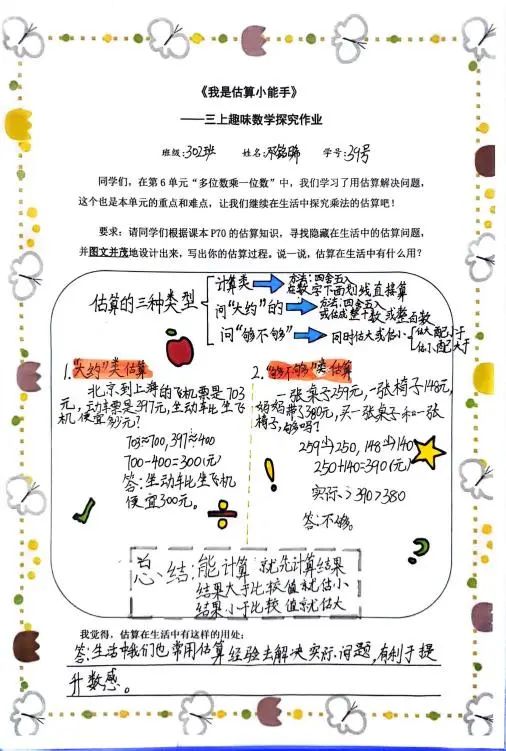 《我是估算小能手》
——三上趣味数学探究作业
班级:302班 姓名: 学号:39号
同学们，在第 6 单元“多位数乘一位数”中，我们学习了用估算解决问题，
这个也是本单元的重点和难点，让我们继续在生活中探究乘法的估算吧！
要求：请同学们根据课本 P70 的估算知识，寻找隐藏在生活中的估算问题，
并图文并茂地设计出来，写出你的估算过程。说一说，估算在生活中有什么用？
估算的三种类型
计算类
方法:四舍五入
在数字下面划线直接算
问“大约”的
方法:四舍五入
或估成整十数或整百数
问“够不够”
同时估大或估小
估大配小于
估小配大于
1.“大约”类估算
北京到上海的飞机票是703
元,动车票是397元,坐动车比坐飞
机便宜多少元?
703≈700,397≈400
700-400=300(元)
答:坐动车比坐飞机
便宜300元。
2.“够不够”类估算
一张桌子259元,一张椅子148元,
妈妈带了380元,买一张桌子和一张
椅子,够吗?
259→250,148→140
250+140=390(元)
实际>390>380
答:不够。
总结:能计算就先计算结果
结果大于比较值就估小
结果小于比较值就估大
我觉得，估算在生活中有这样的用处：
答:生活中我们也常用估算经验去解决实际问题,有利于提
升数感。